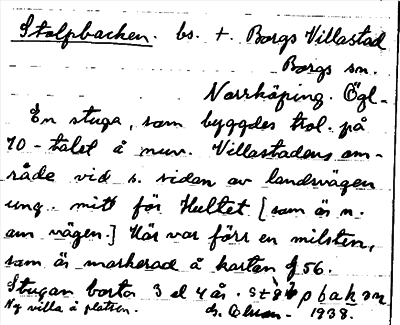 Stolpbacken. bs. t. Borgs Villastad
Borgs sn.
Norrköping. Ögl-
En stuga, som byggdes trol. på
70-talet å nuv. Villastadens om-
råde vid s. sidan av landsvägen
ung. mitt för Hultet [som är n.
om vägen.] Här var förr en milsten,
som är markerad å kartan f 56.
Stugan borta 3 el 4 år.
Ny villa å platsen. 1938.